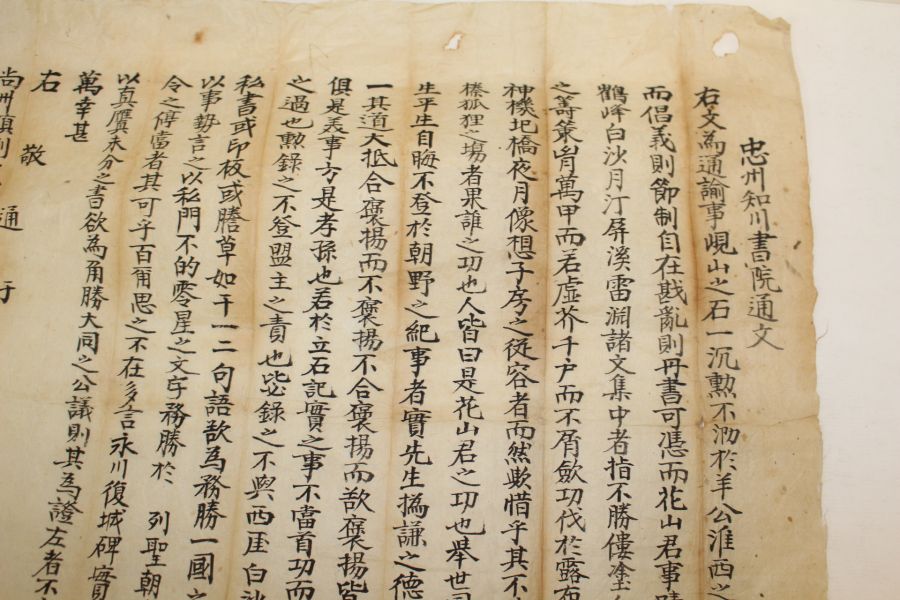 忠州知川書院通文
右文為通諭事峴山之石一沉勲不泐於羊公淮西之
而倡義則節制自在戡亂則丹書可憑而花山君事蹟
鶴峰白沙月汀屏溪雷淵諸文集中者指不勝僂塗
之籌策胷萬甲而若虛芥千户而不屑斂功伐於露布
神機圯橋夜月像想子房之從容者而然歟惜乎其不
榛狐狸之塲者果誰之功也人皆曰是花山君之功也舉世
生平生自晦不登於朝野之紀事者實先生撝謙之德
一其道大抵合褒揚而不褒揚不合褒揚而欲褒揚皆
俱是義事方是孝孫也若於立石記實之事不當首功而
之過也勲錄之不登盟主之責也毖錄之不與西厓白沙
私書或印板或謄草如干一二句語欲為務勝一國之
以事勢言之以私門不的零星之文字務勝於 列聖朝
令之停當者其可乎百爾思之不在多言永川復城碑實
以真贋未分之書欲為角勝大同之公議則其為證左者不
萬幸甚
右 敬 通 于
尚州鎮